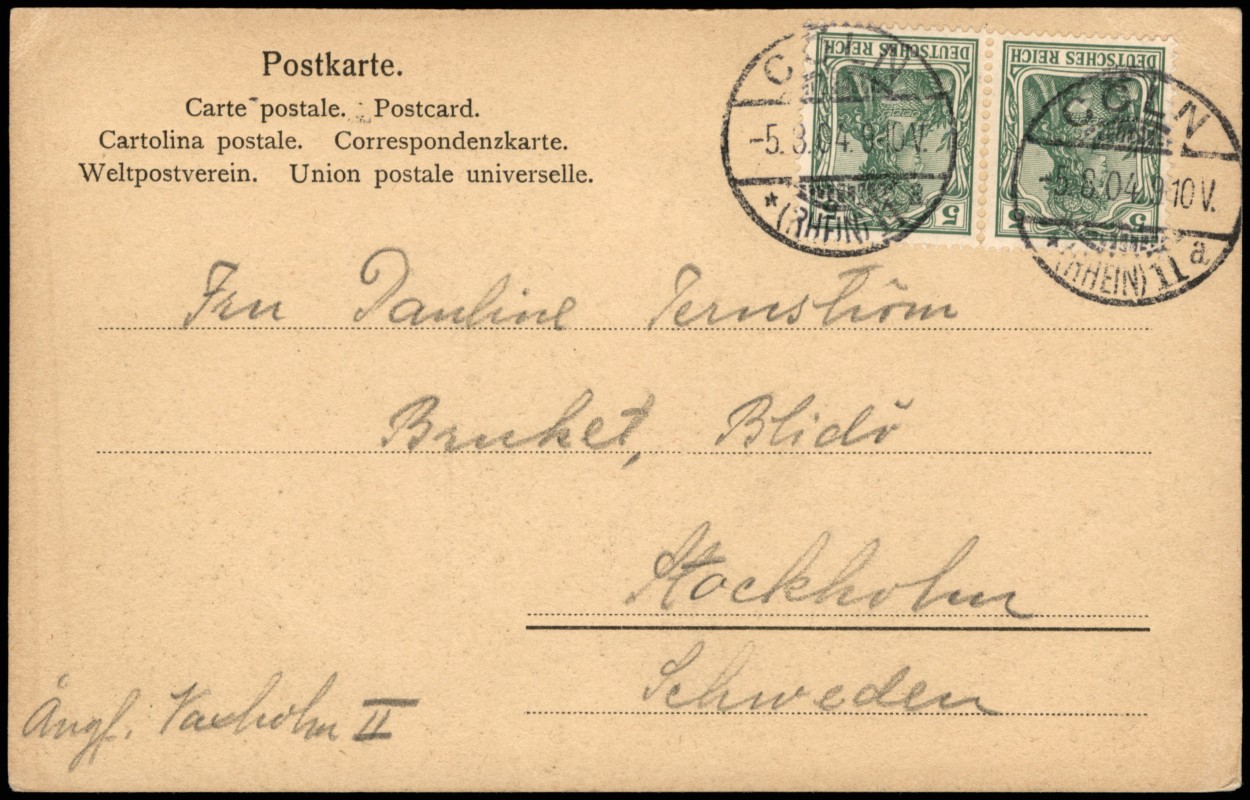 Postkarte.
Carte postale. Postcard.
Cartolina postale. Correspondenzkarte.
Weltpostverein. Union postale universelle.
DEUTSCHES REICH
5
DEUTSCHES REICH
5 5
CÖLN
-5.8.04.9-10V.
* (RHEIN) 11 a
CÖLN
-5.8.04.9-10V.
* (RHEIN) 11 a
Fru Pauline Ternström
Bruket, Blidö
Stockholm
Schweden
Ångf. Vaxholm II